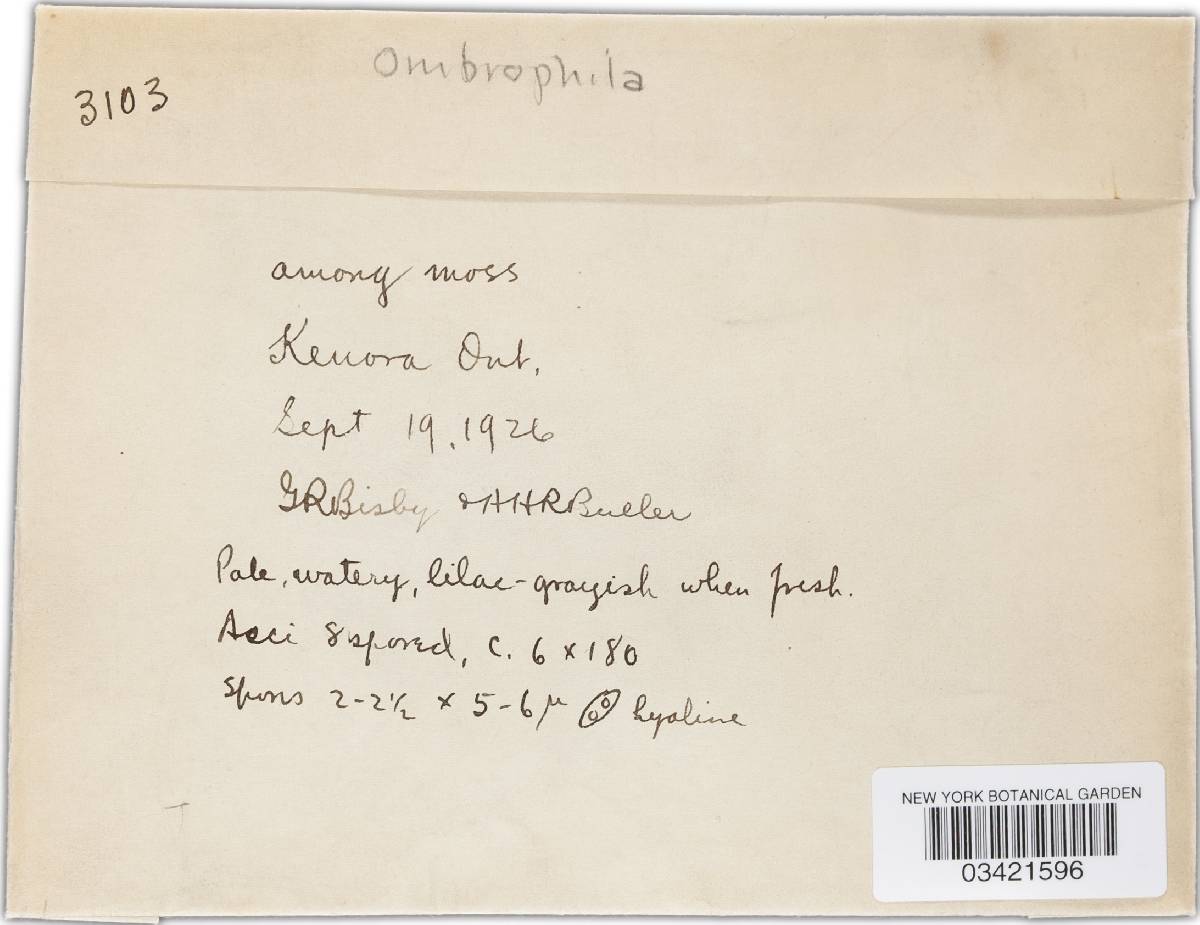 Ombrophila
3103
among moss
Kenora Ont.
Sept 19, 1926
GRBisby & AHRBuller
Pale, watery, lilac-grayish when fresh.
Asci 8 spored, c. 6 x 180
Spores 2-2½ x 5-6 µ hyaline
NEW YORK BOTANICAL GARDEN
03421596